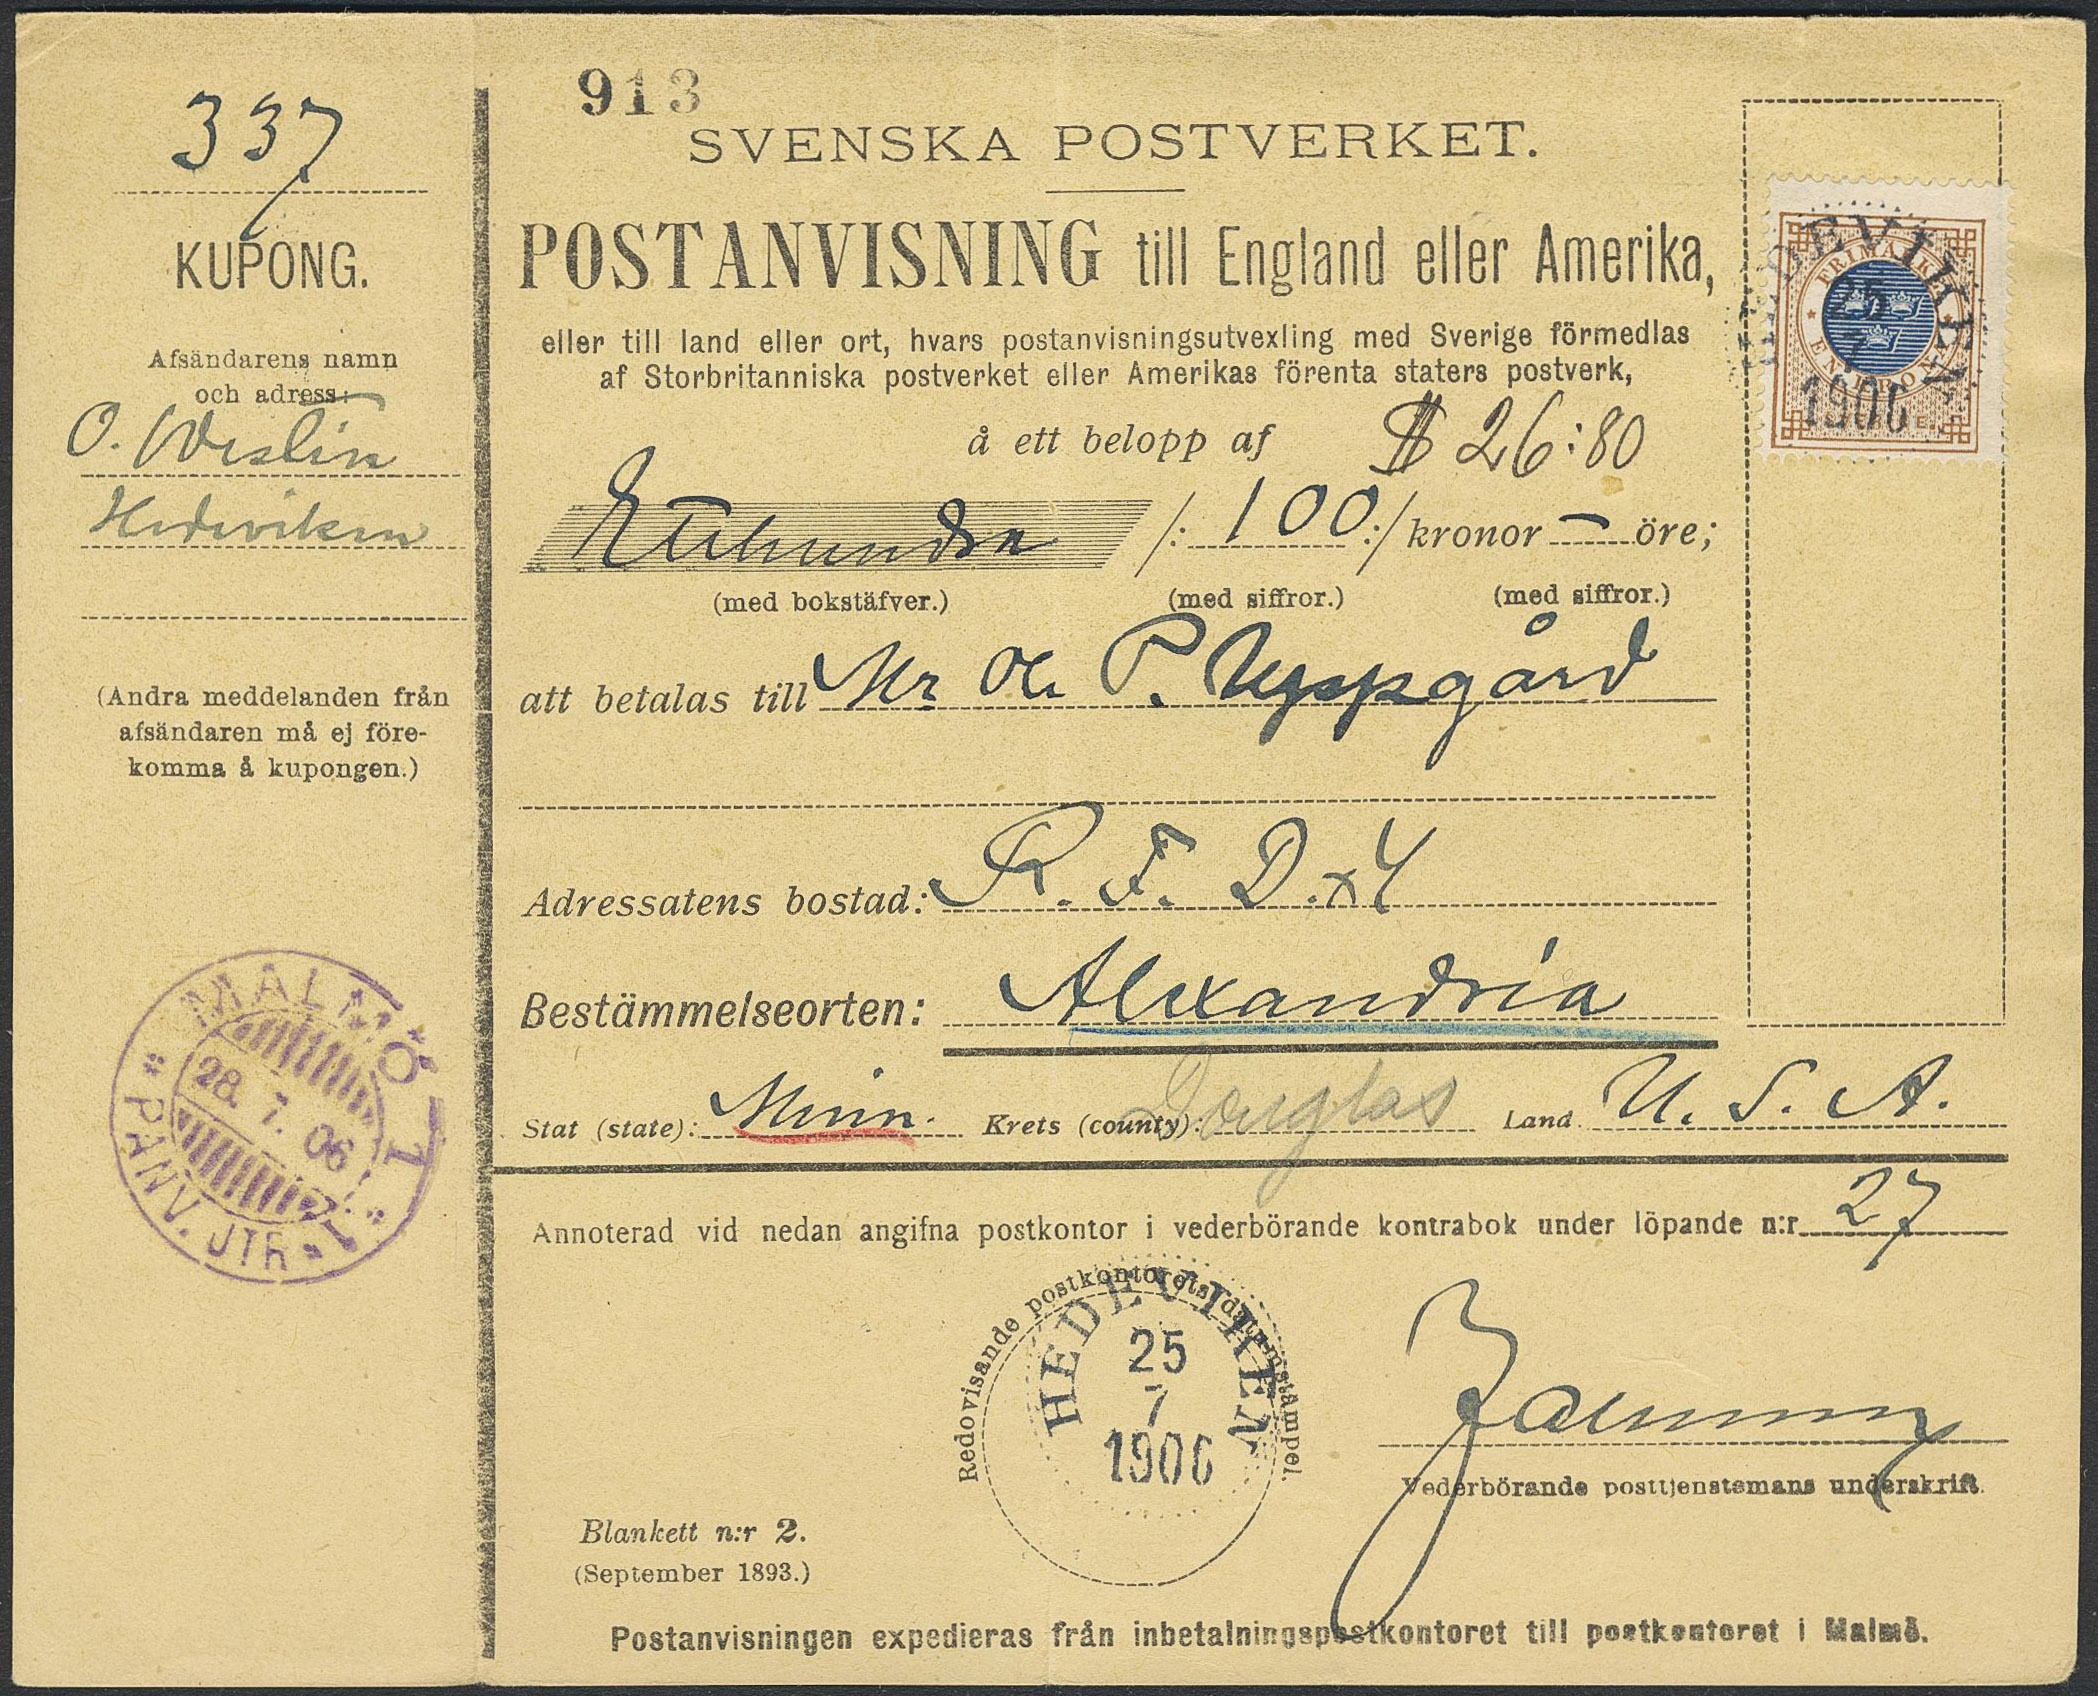 337
KUPONG.
Afsändarens namn
och adress:
O. Weslin
Hedeviken
(Andra meddelanden från
afsändaren må ej före-
komma å kupongen.)
MALMÖ 1
28. 7. 06
PANV. UTR.
913
SVENSKA POSTVERKET.
POSTANVISNING till England eller Amerika,
eller till land eller ort, hvars postanvisningsutvexling med Sverige förmedlas
af Storbritanniska postverket eller Amerikas förenta staters postverk,
å ett belopp af $ 26:80
Etthundra /: 100 :/ kronor — öre;
(med bokstäfver.) (med siffror.) (med siffror.)
att betalas till Mr Ole P. Uppgård
Adressatens bostad: R. F. D. x4
Bestämmelseorten: Alexandria
Stat (state): Minn. Krets (county): Douglas Land U. S. A.
Annoterad vid nedan angifna postkontor i vederbörande kontrabok under löpande n:r 27
Redovisande postkontorets datumstämpel.
HEDEVIKEN
25
7
1906
Vederbörande posttjenstemans underskrift.
Blankett n:r 2.
(September 1893.)
Postanvisningen expedieras från inbetalningspostkontoret till postkontoret i Malmö.
HEDEVIKEN
25
7
1906
FRIMÄRKE
EN KRONA